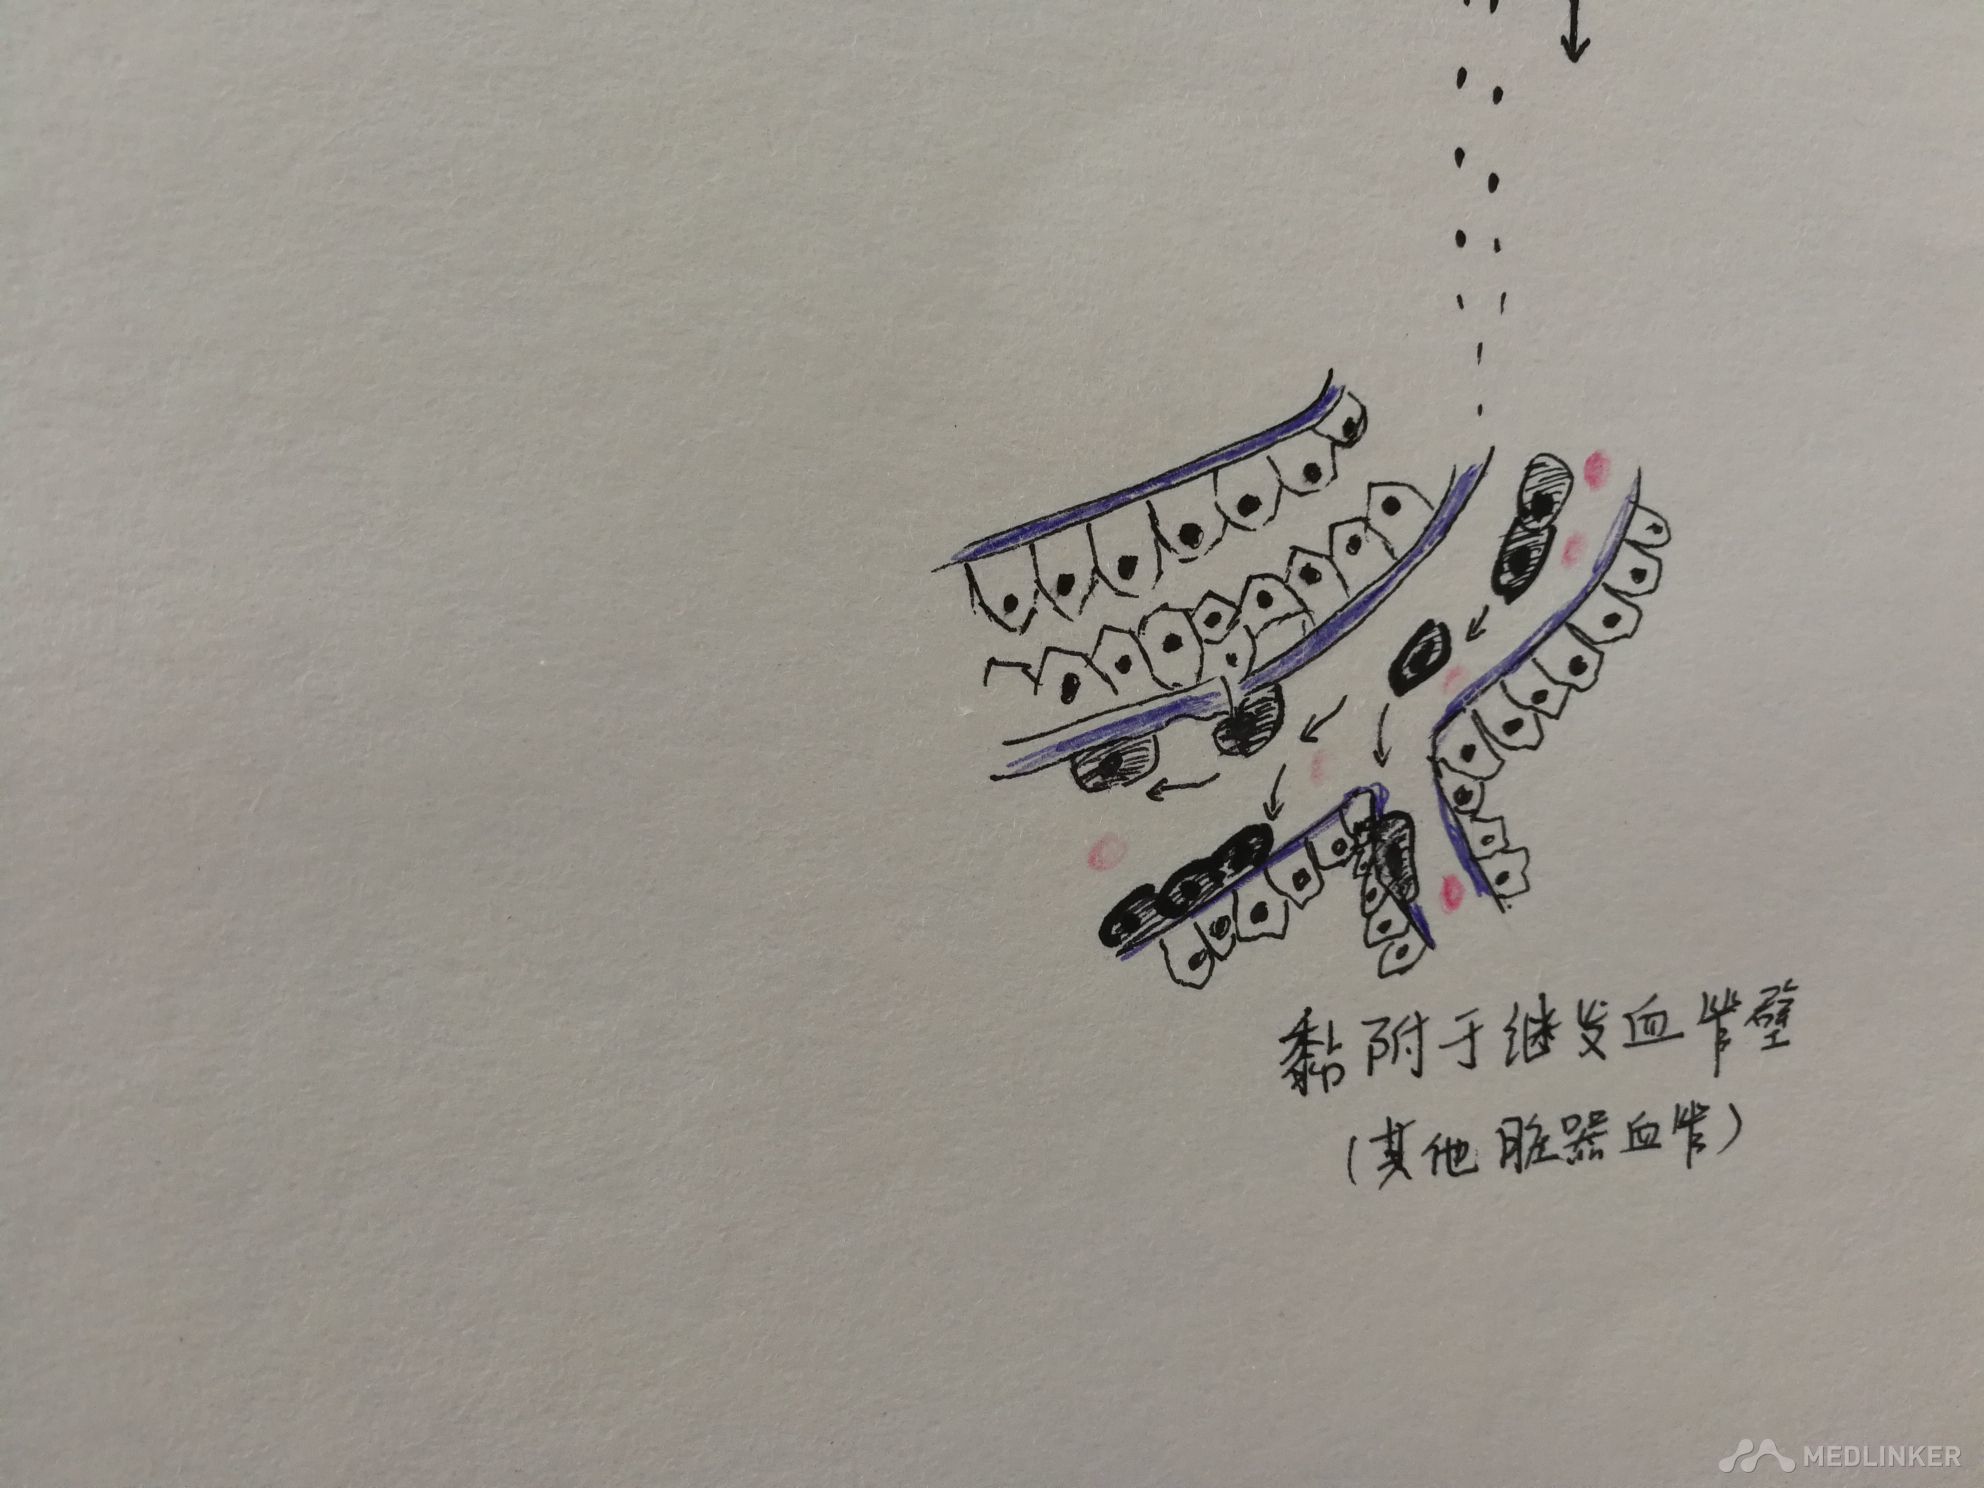 黏附于继发血管壁
(其他脏器血管)
MEDLINKER